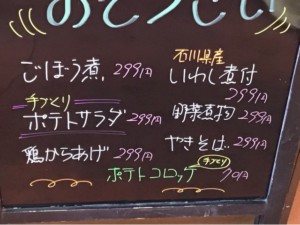 おそうざい
ごぼう煮 299円
手づくり
ポテトサラダ 299円
鶏からあげ 299円
石川県産
いわし煮付
299円
野菜煮物 299円
やきそば 299円
手づくり
ポテトコロッケ 70円